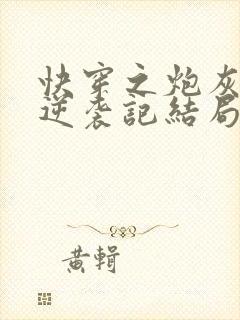 快穿之炮灰
逆袭記結局
黄輯